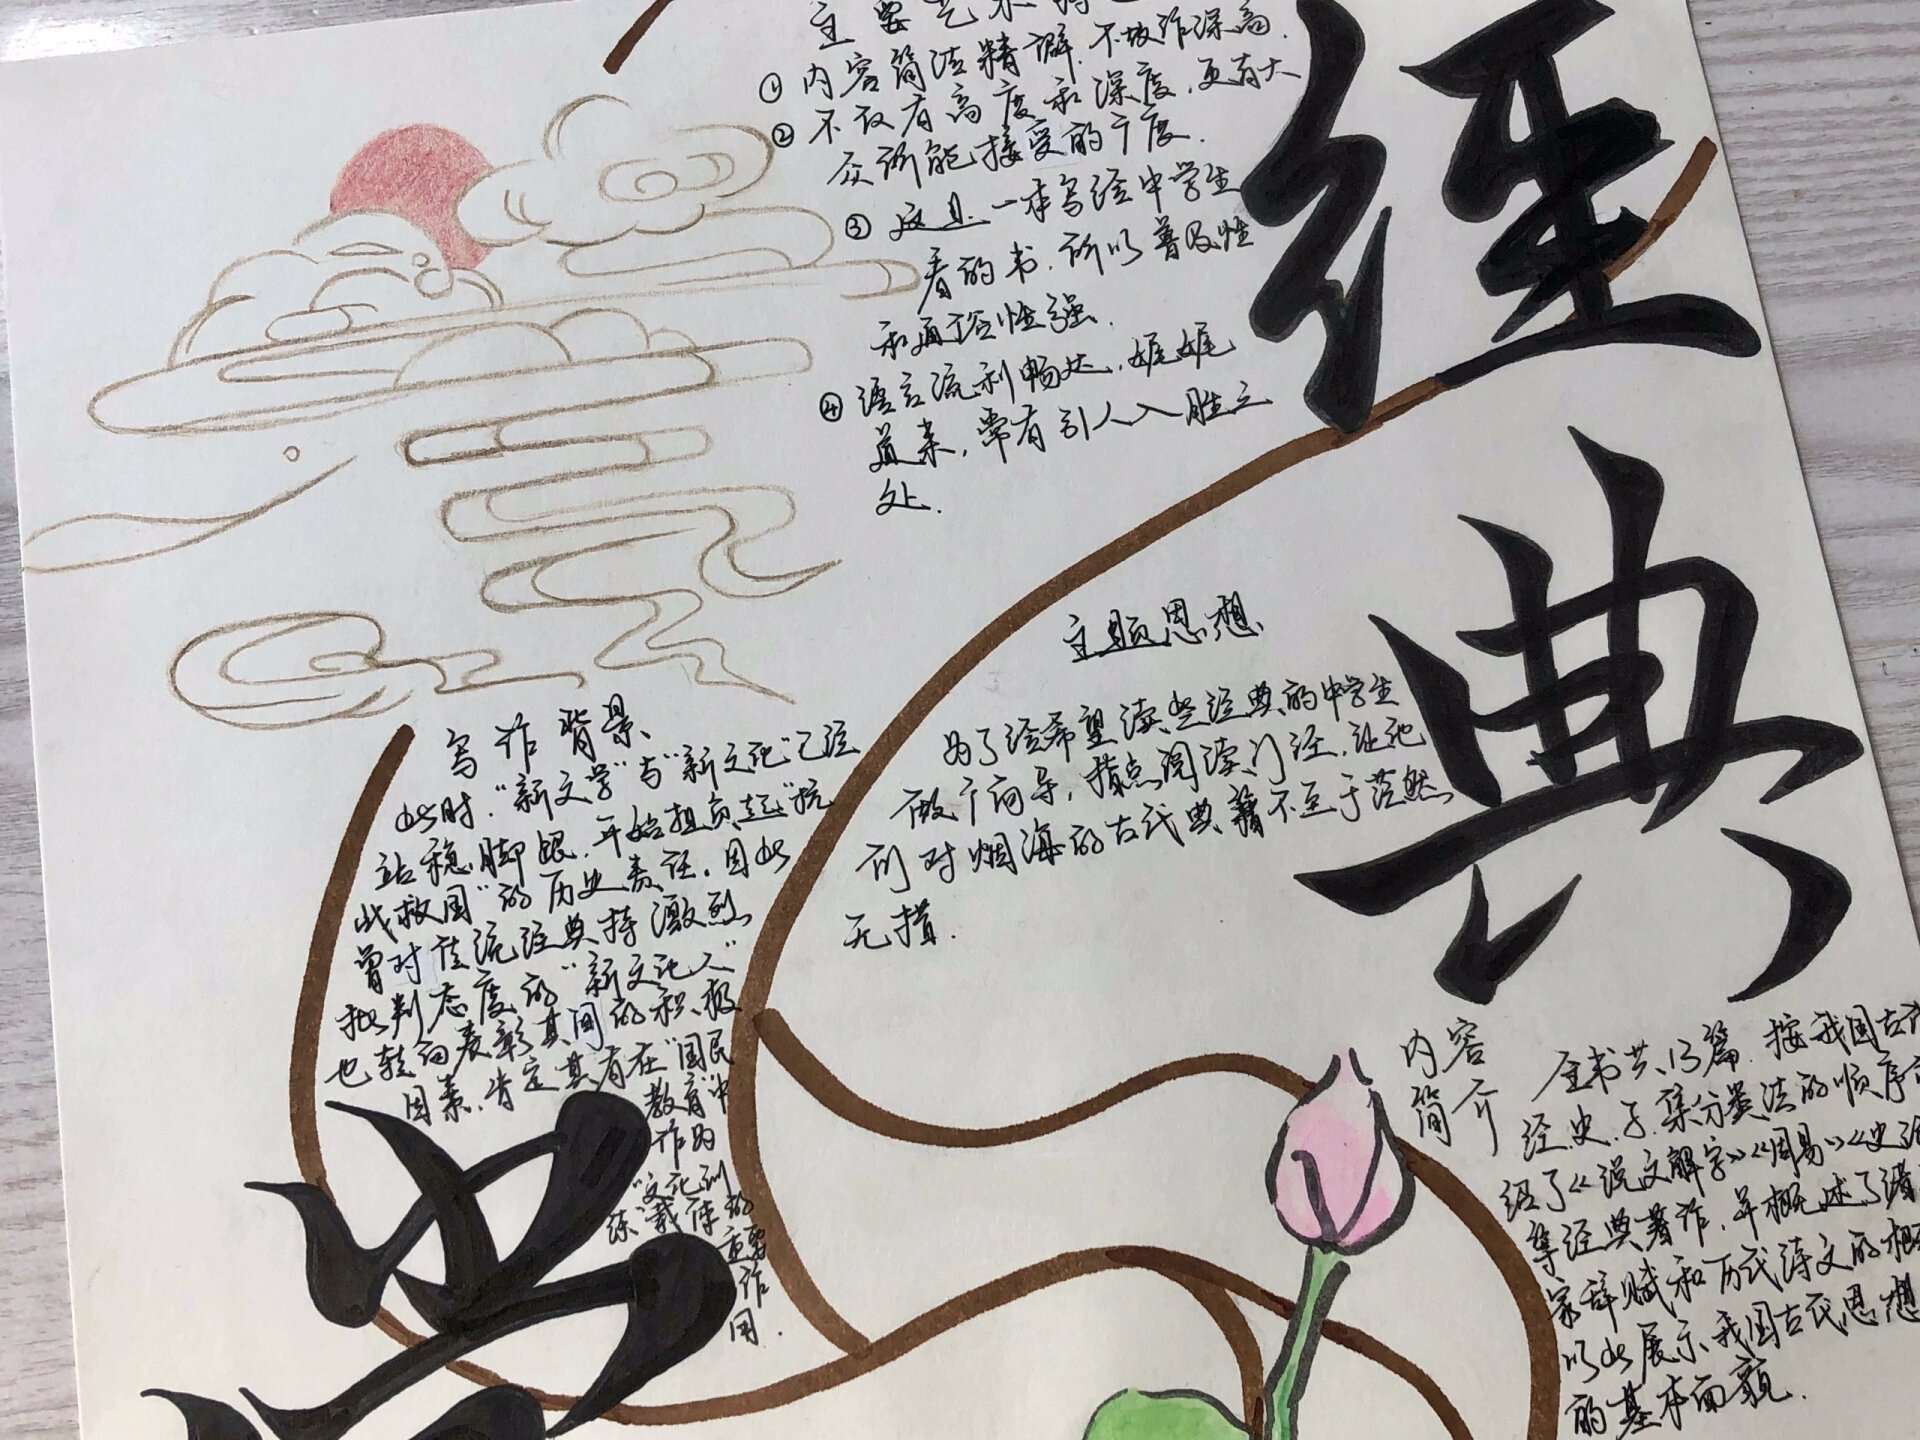 主要艺术特
① 内容简洁精辟.不故作深高.
② 不仅有高度和深度,更有大
众所能接受的广度.
③ 这是一本写给中学生
看的书.所以普及性
和通俗性强.
④ 语言流利畅达,娓娓
道来,常有引人入胜之
处.
经
典
主题思想
为了给希望读些经典的中学生
做个向导,指点阅读门径.让他
们对烟海的古代典籍不至于茫然
无措.
写作背景
此时."新文学"与"新文化"已经
站稳脚跟.开始担负起"抗
战救国"的历史责任.因此
曾对传统经典持激烈
批判态度的"新文化人"
也转向表彰其间的积极
因素.肯定其有在"国民
教育"中
作为
"文化训
练"载体的
重要作
用.
内容
简介
全书共13篇.按我国古
经.史.子.集分类法的顺序
绍了《说文解字》《周易》《史
等经典著作,并概述了诸
家辞赋和历代诗文的概
以此展示我国古代思想
的基本面貌.